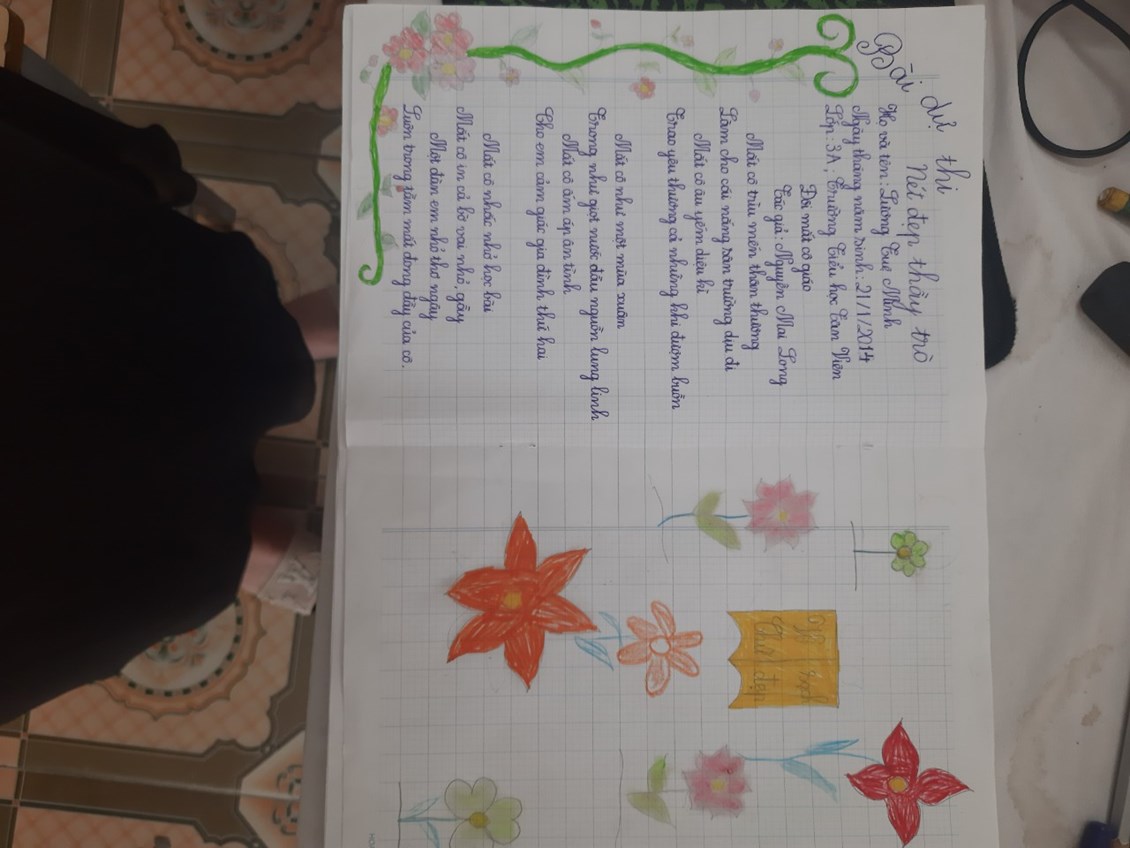 Bài dự thi
Nét đẹp thầy trò
Họ và tên: Lương Tuệ Minh
Ngày tháng năm sinh: 21/1/2014
Lớp: 3A, Trường Tiểu học Tản Viên
Đôi mắt cô giáo
Tác giả: Nguyễn Mai Long
Mắt cô trìu mến thân thương
Làm cho cái nắng sân trường dịu đi
Mắt cô âu yếm diệu kì
Trao yêu thương cả những khi đượm buồn
Mắt cô như một mùa xuân
Trong như giọt nước đầu nguồn lung linh
Mắt cô ấm áp ân tình
Cho em cảm giác gia đình thứ hai
Mắt cô nhắc nhở học bài
Mắt cô in cả bờ vai nhỏ, gầy
Một đàn em nhỏ thơ ngây
Luôn trong tầm mắt đong đầy của cô.
Vở sạch
Chữ đẹp